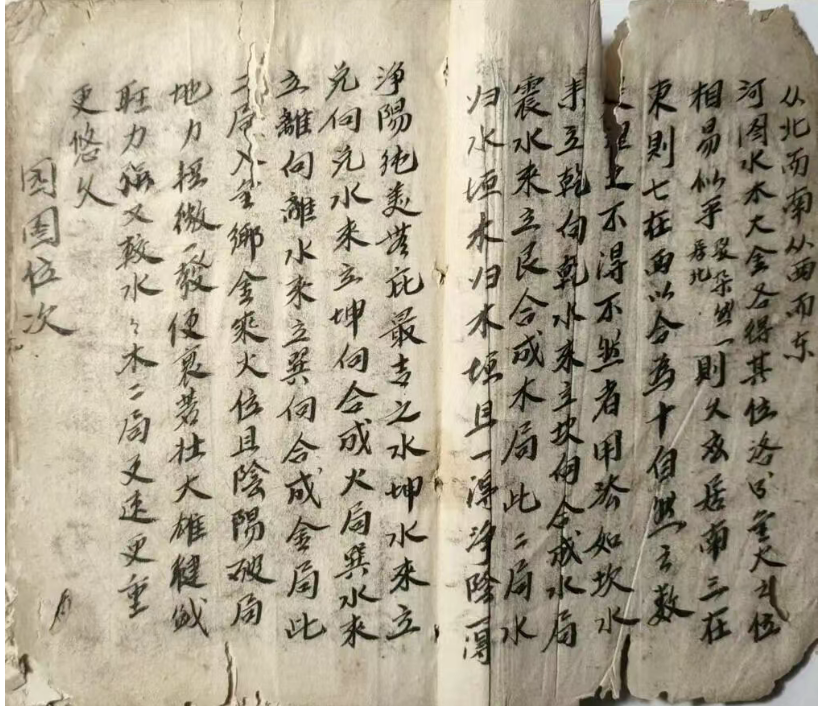 从北而南从西而东
河图水木火金各得其位洛书金火之位
相易似乎然一則久亥居南三在
東則七在西以合為十自然之数
之不得不然者用法如坎水
来立乾向乾水来立坎向合成水局
震水来立艮合成木局此二局水
归水垣木归木垣且一得净陰一得
净陽純美悠庇最吉之水坤水来立
兌向兌水来立坤向合成火局巽水来
立離向離水来立巽向合成金局此
二局入金鄉金乘火位且陰陽破局
地力猛微一發便衰若壮大雄健
旺力强又較水々木二局更速更重
更悠久
图位次